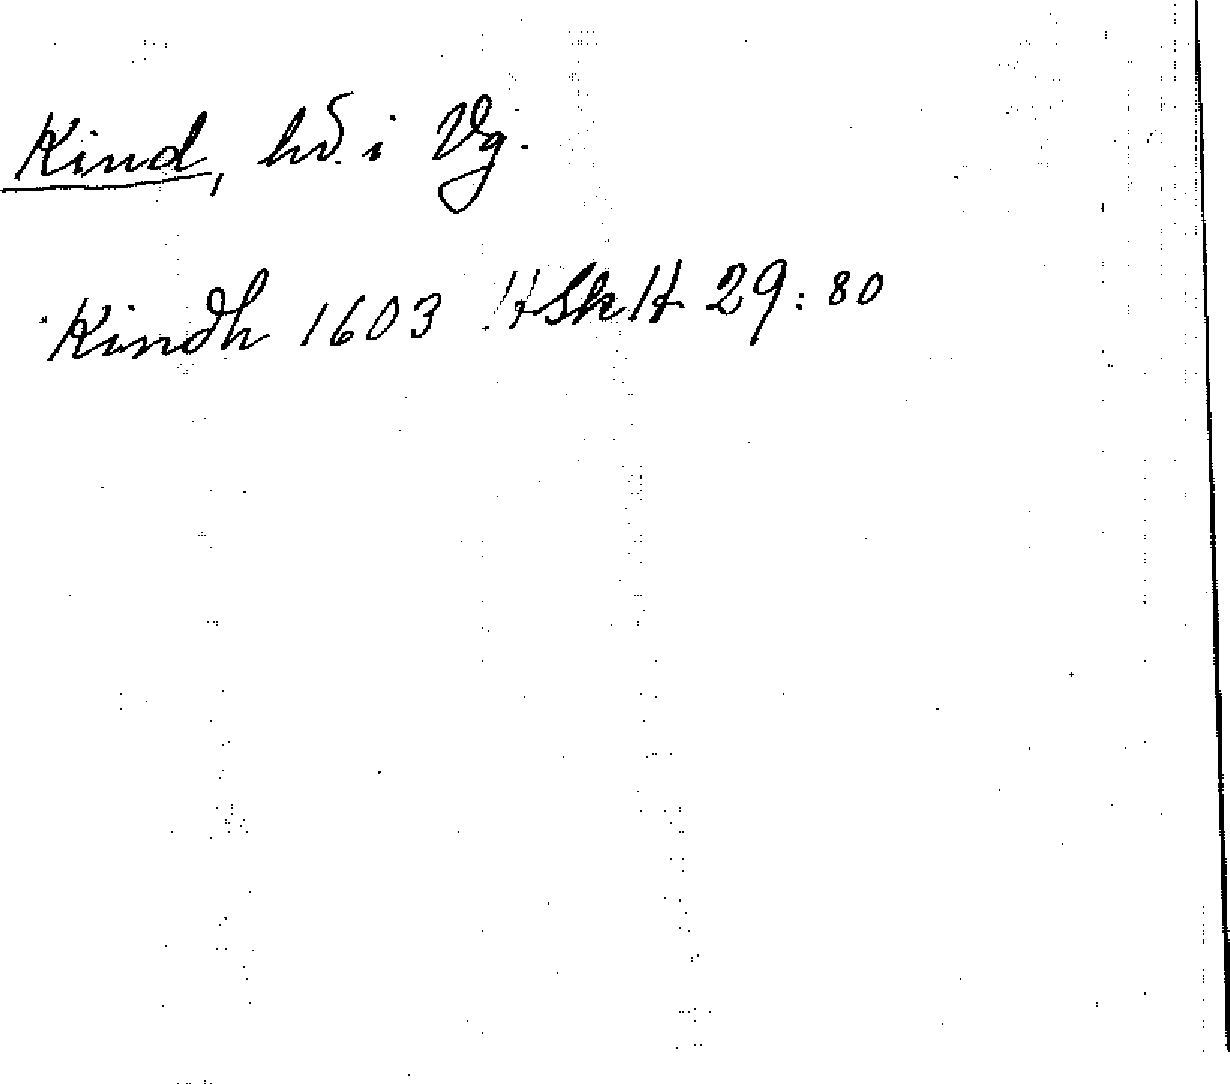 Kind, hd. i Vg.
Kindh 1603 HSkH 29:80